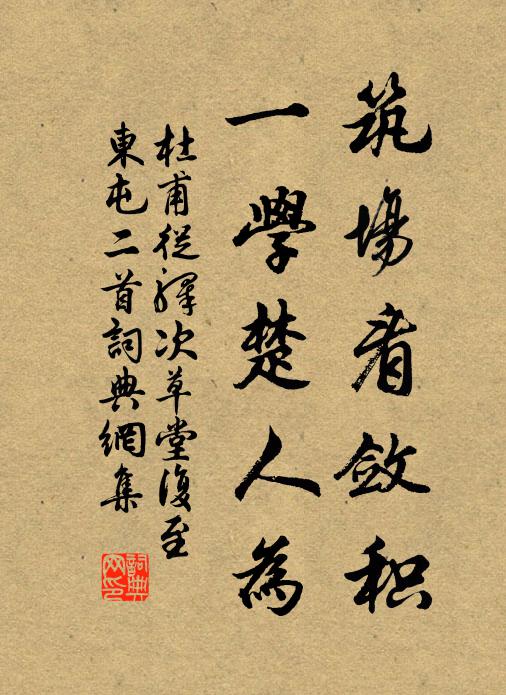 筑場看斂积
一學楚人為
杜甫從驛次草堂復至
東屯二首詞典網集
詞典网印